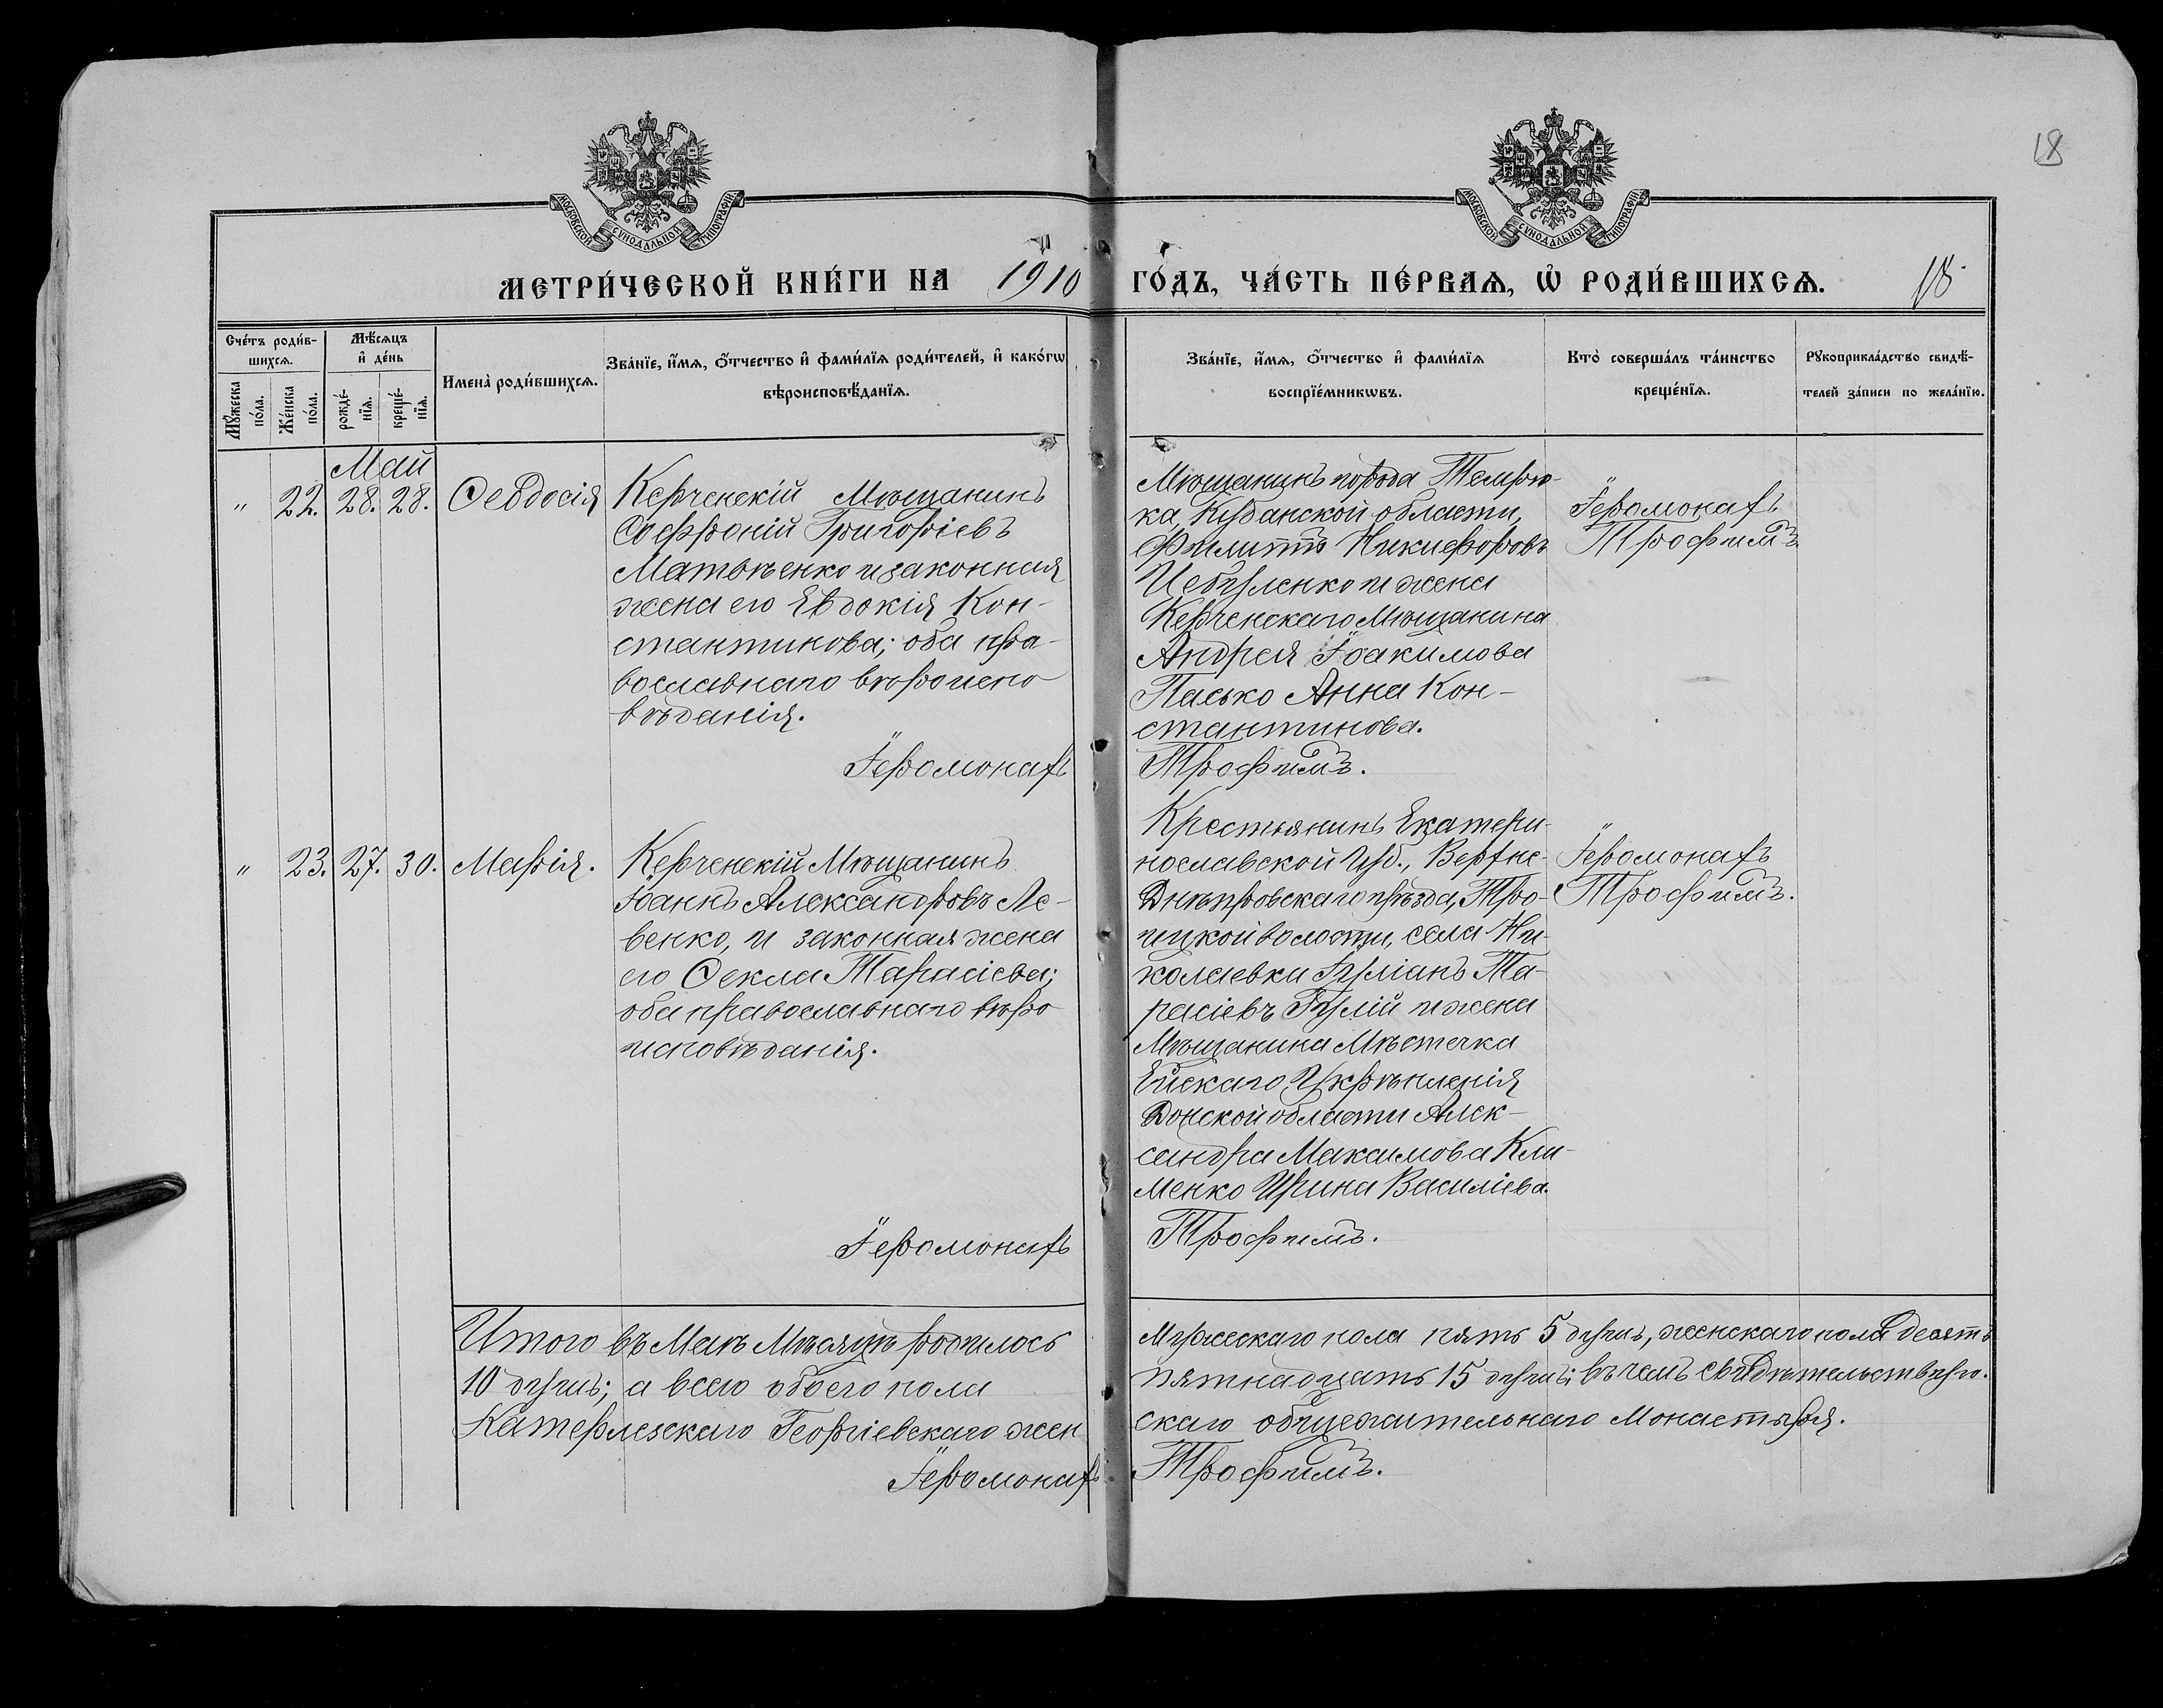 18
МОСКОВСКОЙ СУНОДАЛЬНОЙ ТИПОГРАФІИ
МОСКОВСКОЙ СУНОДАЛЬНОЙ ТИПОГРАФІИ
МЕТРИ́ЧЕСКОЙ КНИ́ГИ НА 1910 ГО́ДЪ, ЧА́СТЬ ПЕ́РВАѦ, Ѽ РОДИ́ВШИХСѦ. 18.
Сче́тъ роди́в-
шихсѧ.
Мꙋжеска по́ла.
Же́нска по́ла.
Мѣ́сѧцъ и҆ де́нь
рожде́-нїѧ.
креще́-нїѧ.
Имена̀ роди́вшихсѧ.
Зва́нїе, и҆́мѧ, ѻ҆́тчество и҆ фами́лїѧ роди́телей, и҆ како́гѡ
вѣроисповѣ́данїѧ.
Зва́нїе, и҆́мѧ, ѻ҆́тчество и҆ фами́лїѧ
воспрїе́мникѡвъ.
Кто̀ соверша́лъ та́инство
креще́нїѧ.
Рꙋкоприкла́дство свидѣ́-
телей за́писи по жела́нїю.
Май
" 22. 28. 28. Ѳеодосія
Керченскій Мѣщанинъ
Софроній Григоріевъ
Матвѣенко и законная
жена его Евдокія Кон-
стантинова; оба пра-
вославнаго вѣроиспо
вѣданія.
Іеромонахъ
Мѣщанинъ города Темрю-
ка, Кубанской области,
Филиппъ Никифоровъ
Цебуленко и жена
Керченскаго Мѣщанина
Андрея Іоакимова
Пасько Анна Кон-
стантинова.
Трофимъ.
Іеромонахъ
Трофимъ.
" 23. 27. 30. Марія.
Керченскій Мѣщанинъ
Іоаннъ Александровъ Ле-
венко, и законная жена
его Ѳекла Тарасіева;
оба православнаго вѣро
исповѣданія.
Іеромонахъ
Крестьянинъ Екатери-
нославской Губ., Верхне-
Днѣпровскаго уѣзда, Тро-
ицкой волости, села Ни-
колаевки Іуліанъ Та-
расіевъ Гулій и жена
Мѣщанина Мѣстечка
Ейскаго Укрѣпленія
Донской области Алек-
сандра Максимова Кли-
менко Ирина Василіева.
Трофимъ.
Іеромонахъ
Трофимъ.
Итого въ Маѣ Мѣсяцѣ родилось Мужескаго пола пять 5 душъ, женскаго пола десять
10 душъ; а всего обоего пола пятнадцать 15 душъ; въ чемъ свидѣтельствую.
Катерлезскаго Георгіевскаго жен скаго общежительнаго Монастыря.
Іеромонахъ Трофимъ.